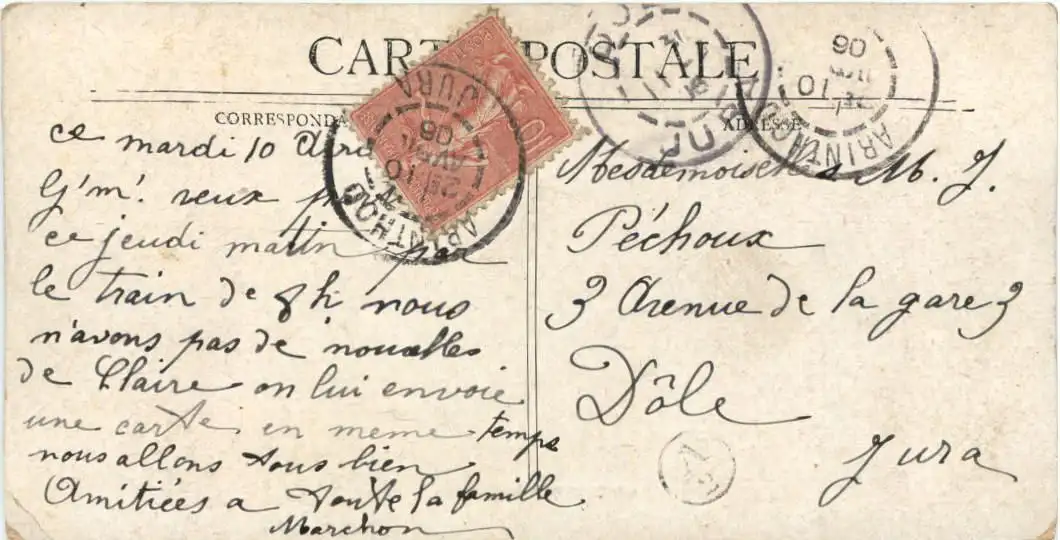 CARTE POSTALE
CORRESPONDA
ADRESSE
ARINTHOD
JURA
10
AVRIL
06
ARINTHOD
10
06
ce mardi 10 Avr
veux
ce jeudi matin par
le train de 8h. nous
n'avons pas de nouvelles
de Claire on lui envoie
une carte en meme temps
nous allons tous bien
Amitiées a toute la famille
Marchon
Mesdemoiselles M. J.
Péchoux
3 Avenue de la gare 3
Dôle
Jura